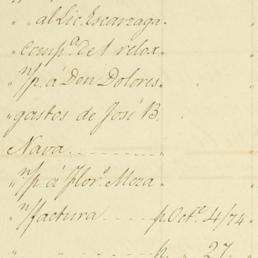 " al Lic. Escarzaga
" comp.ª del relox
" n/p. á Don Dolores
" gastos de José B.
Nava
" n/p. á Flor.ˢ Meza
" n/factura p. Oct.ᵉ 4/74
" " p. " 27 "